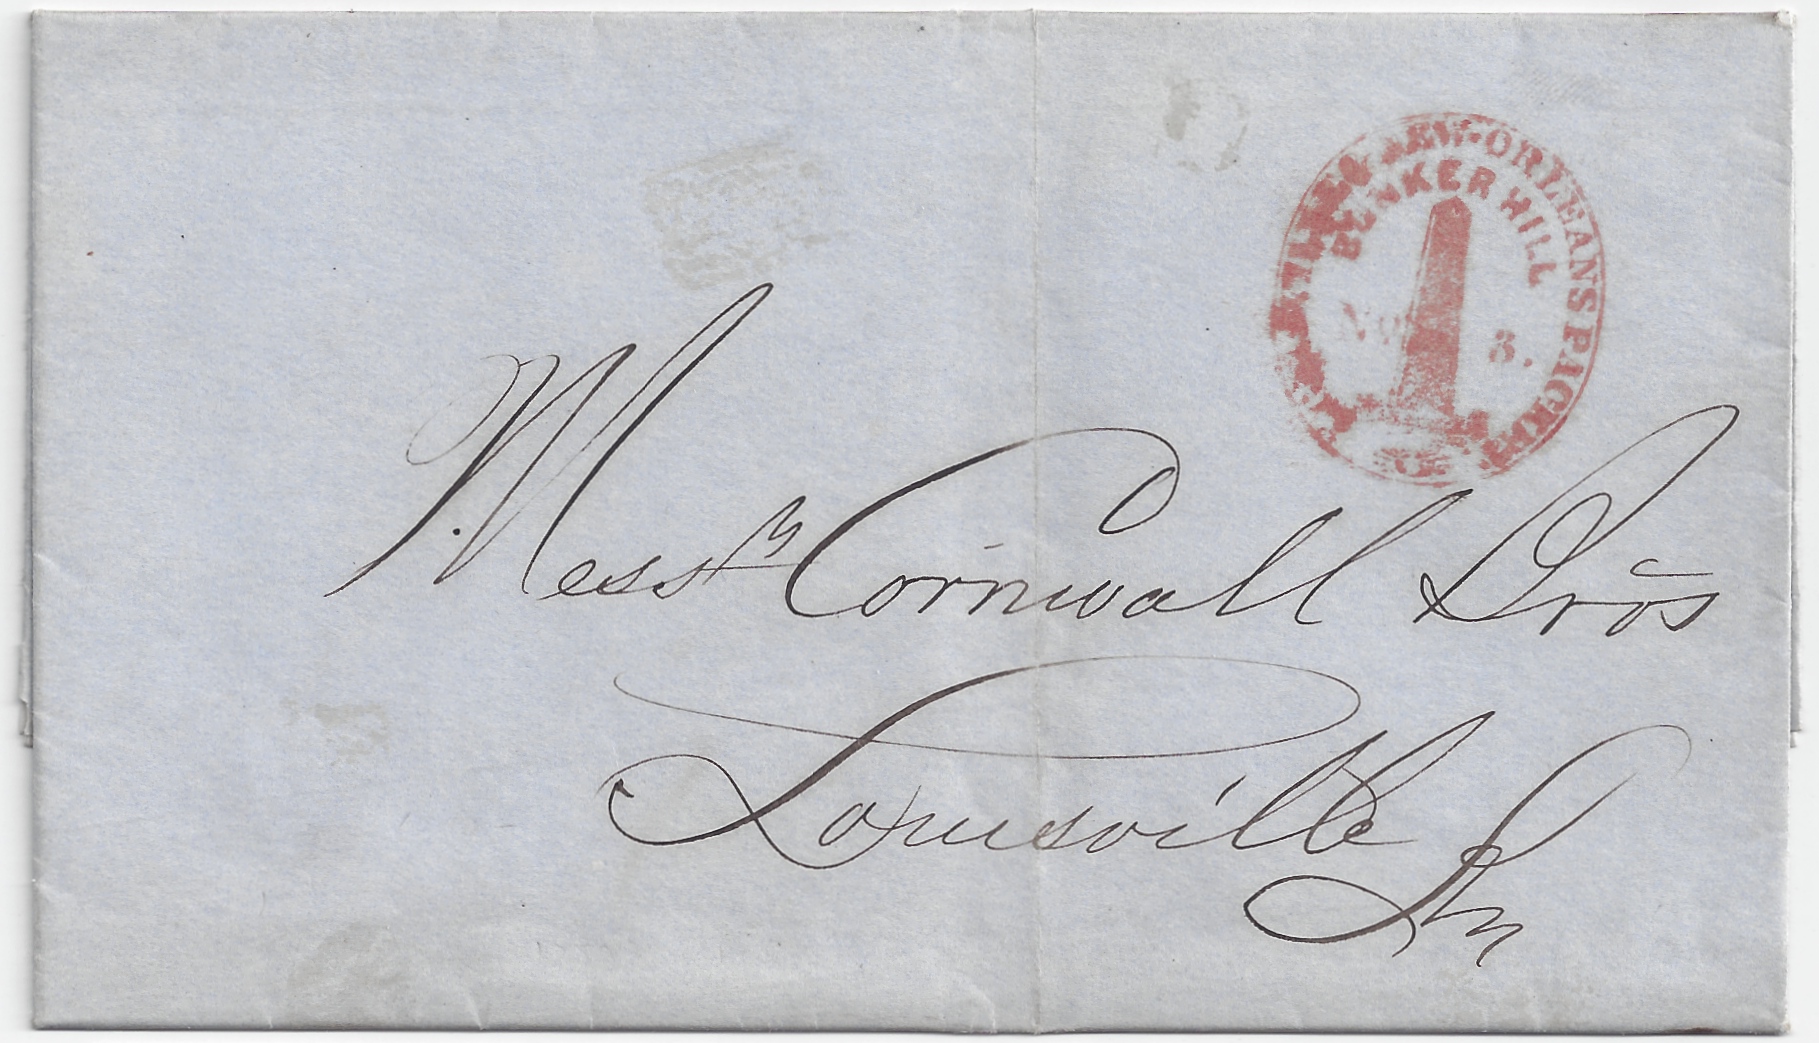 NEW-ORLEANS PACKET
BUNKER HILL
No. 3.
Messrs Cornwall & Bros
Louisville
Ky